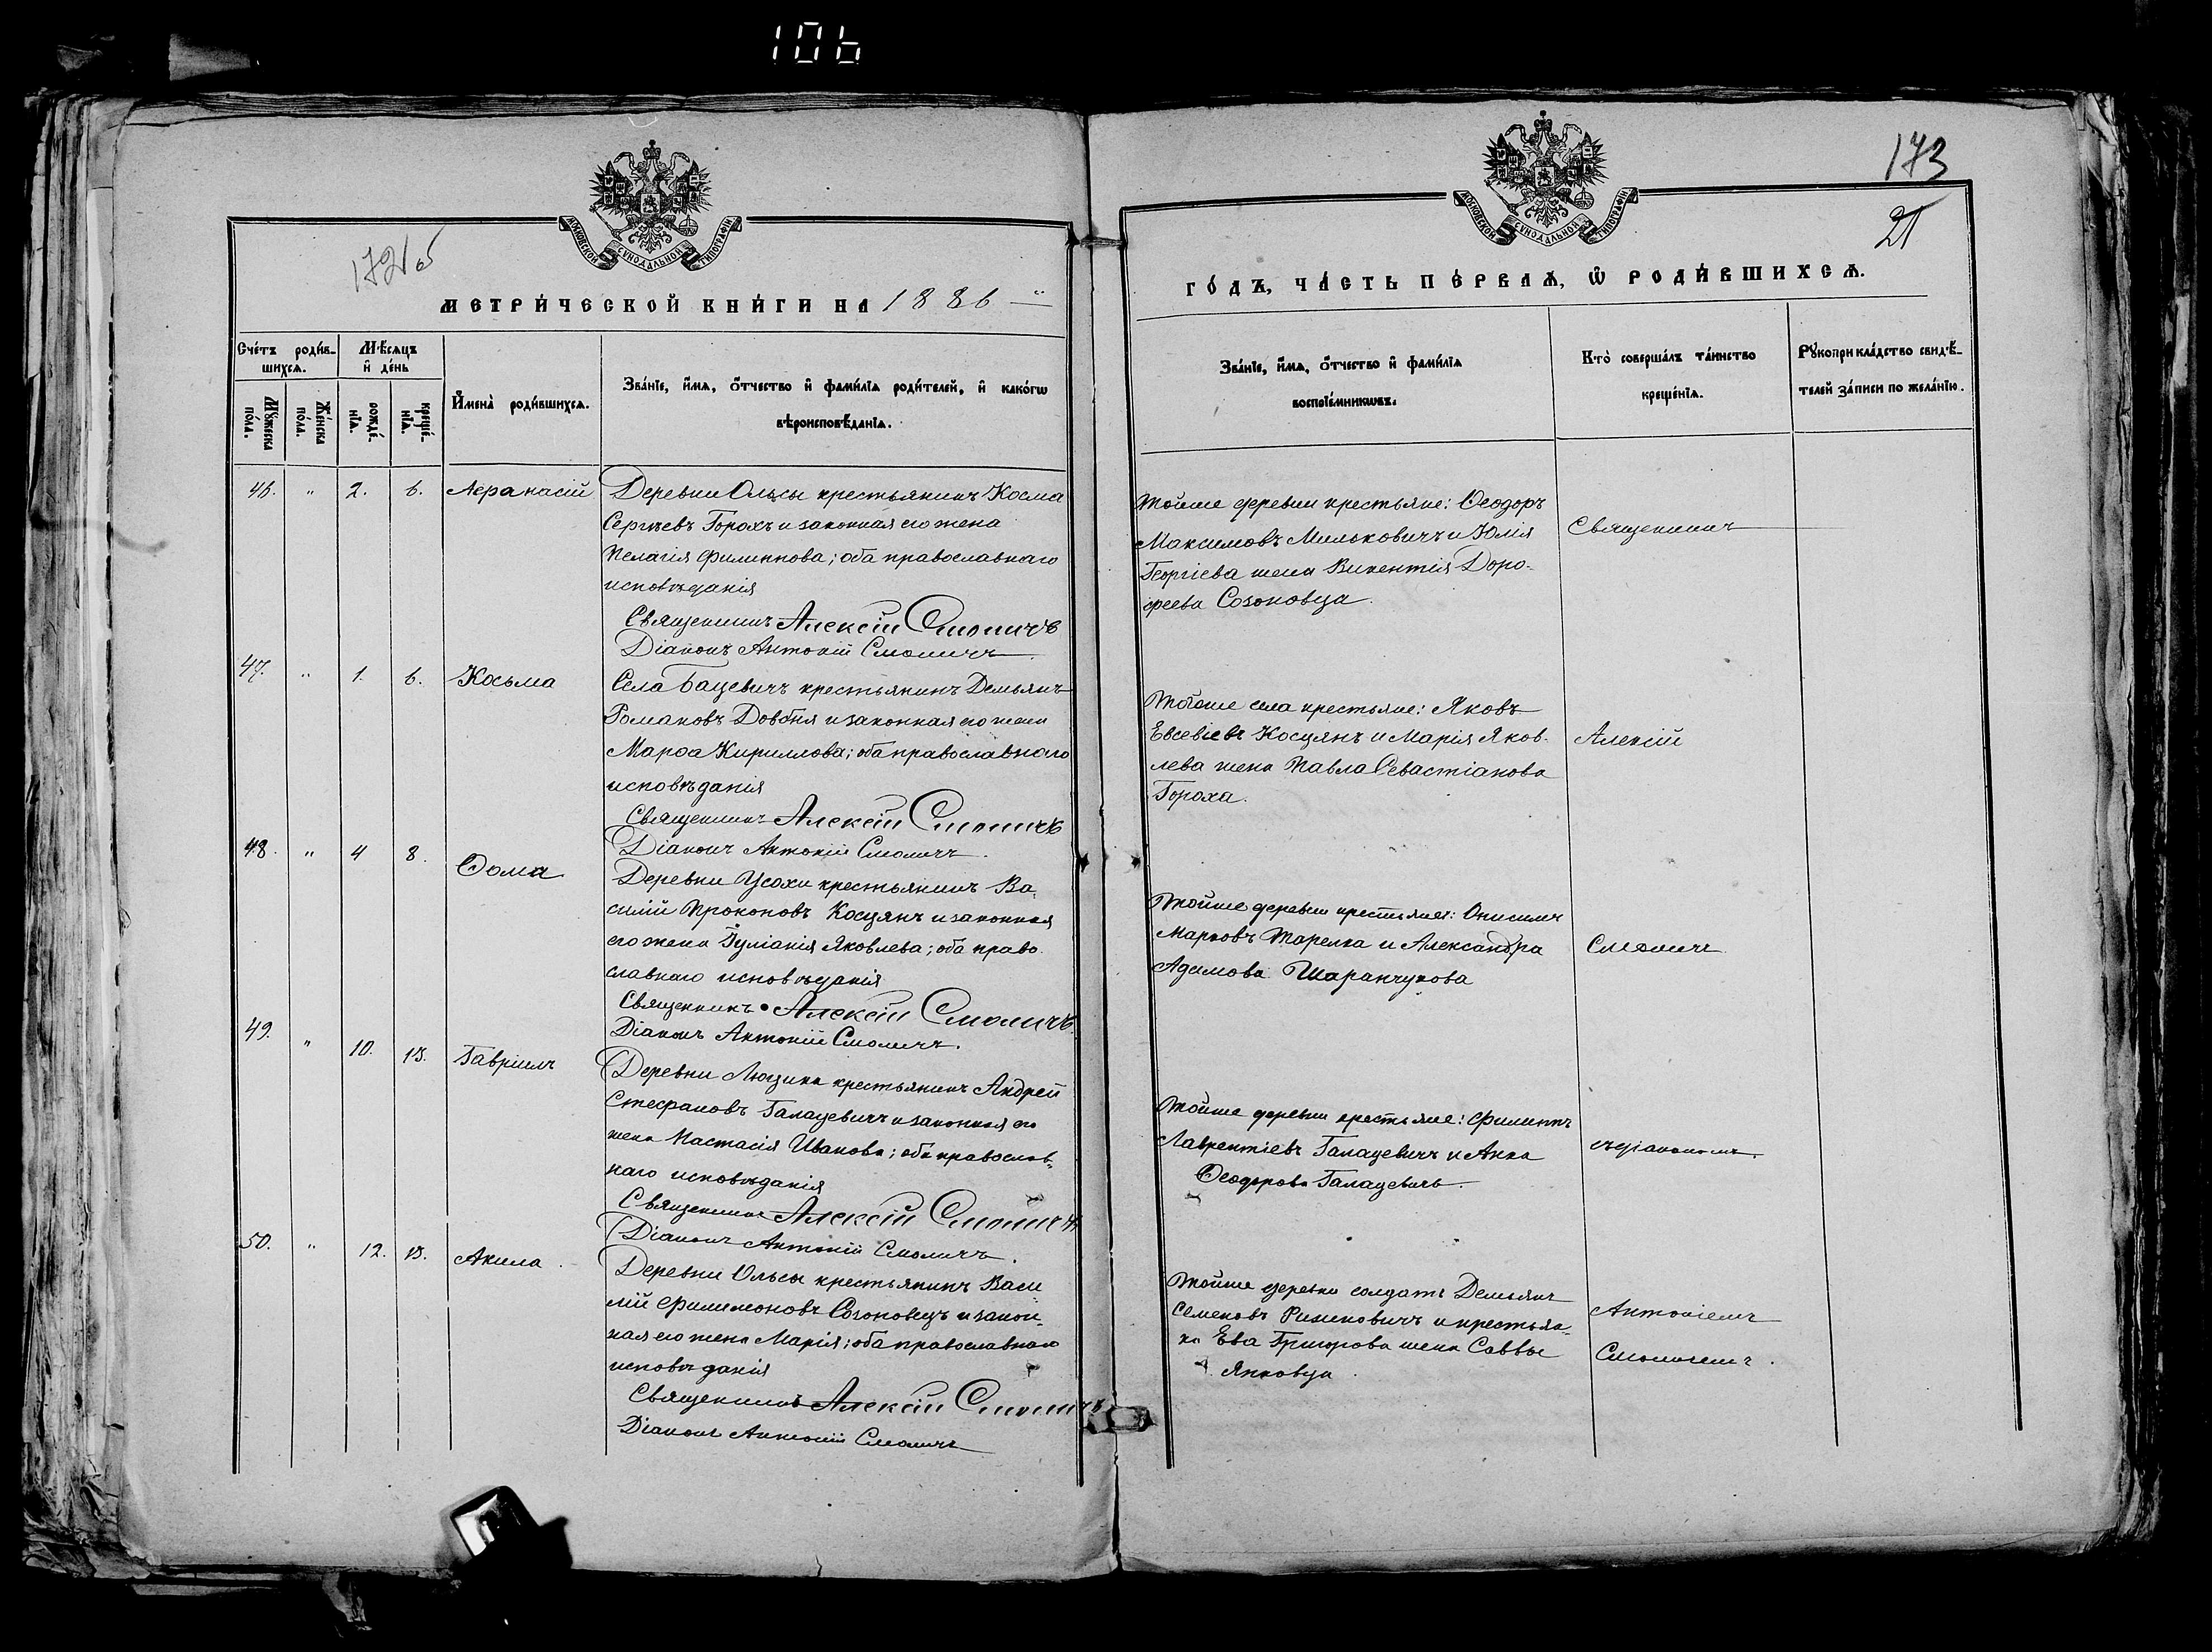 106
МОСКОВСКОЙ СѴНОДАЛЬНОЙ ТИПОГРАФІИ
172об
МЕТРИ́ЧЕСКОЙ КНИ́ГИ НА 1886 —"
Сче́тъ роди́в-
шихсѧ.
Мѣ́сѧцъ
и҆ де́нь
Мꙋ́жеска по́ла.
Же́нска по́ла.
рожде́-
нїѧ.
креще́-
нїѧ.
И҆мена̀ роди́вшихсѧ.
Зва́нїе, и҆́мѧ, ѻ҆́тчество и҆ фами́лїѧ роди́телей, и҆ како́гѡ
вѣроисповѣ́данїѧ.
46. " 2. 6. Аѳанасій Деревни Ольсы крестьянинъ Косма
Сергѣевъ Горохъ и законная его жена
Пелагія Филиппова; оба православнаго
исповѣданія
Священникъ Алексій Смоличъ
Діаконъ Антоній Смоличъ.
47. " 1. 6. Косьма Села Бацевичъ крестьянинъ Демьянъ
Романовъ Довбня и законная его жена
Марѳа Кириллова; оба православнаго
исповѣданія
Священникъ Алексій Смоличъ
Діаконъ Антоній Смоличъ.
48. " 4 8. Ѳома Деревни Усохи крестьянинъ Ва
силій Прокоповъ Косцянъ и законная
его жена Іуліанія Яковлева; оба право
славнаго исповѣданія
Священникъ Алексій Смоличъ.
Діаконъ Антоній Смоличъ.
49. " 10. 13. Гавриилъ Деревни Лющина крестьянинъ Андрей
Стефановъ Галацевичъ и законная его
жена Настасія Иванова; оба православ-
наго исповѣданія
Священникъ Алексій Смоличъ
Діаконъ Антоній Смоличъ.
50. " 12. 13. Акила. Деревни Ольсы крестьянинъ Васи
лій Филимоновъ Созоновецъ и закон-
ная его жена Марія; оба православнаго
исповѣданія
Священникъ Алексій Смоличъ
Діаконъ Антоній Смоличъ
173
МОСКОВСКОЙ СѴНОДАЛЬНОЙ ТИПОГРАФІИ
21
ГО́ДЪ, ЧА́СТЬ ПЕ́РВАѦ, Ѡ҆ РОДИ́ВШИХСѦ.
Зва́нїе, и҆́мѧ, ѻ҆́тчество и҆ фами́лїѧ
воспрїе́мникѡвъ.
Кто̀ соверша́лъ та́инство
креще́нїѧ.
Рꙋкоприкла́дство свидѣ́-
телей за́писи по жела́нїю.
Тойже деревни крестьяне: Ѳеодоръ
Максимовъ Мильковичъ и Юлія
Георгіева жена Викентія Доро-
феева Созоновца.
Тогоже села крестьяне: Яковъ
Евсевіевъ Косцянъ и Марія Яков-
лева жена Павла Севастіанова
Гороха.
Тойже деревни крестьяне: Онисимъ
Марковъ Тарелка и Александра
Адамова Шаранчукова
Тойже деревни крестьяне: Филиппъ
Лаврентіевъ Галацевичъ и Анна
Ѳеодорова Галацевичъ.
Тойже деревни солдатъ Демьянъ
Семеновъ Ришковичъ и крестьян-
ка Ева Григорова жена Саввы
Янковца.
Священникъ
Алексій
Смоличъ
съ діакономъ
Антоніемъ
Смоличемъ.